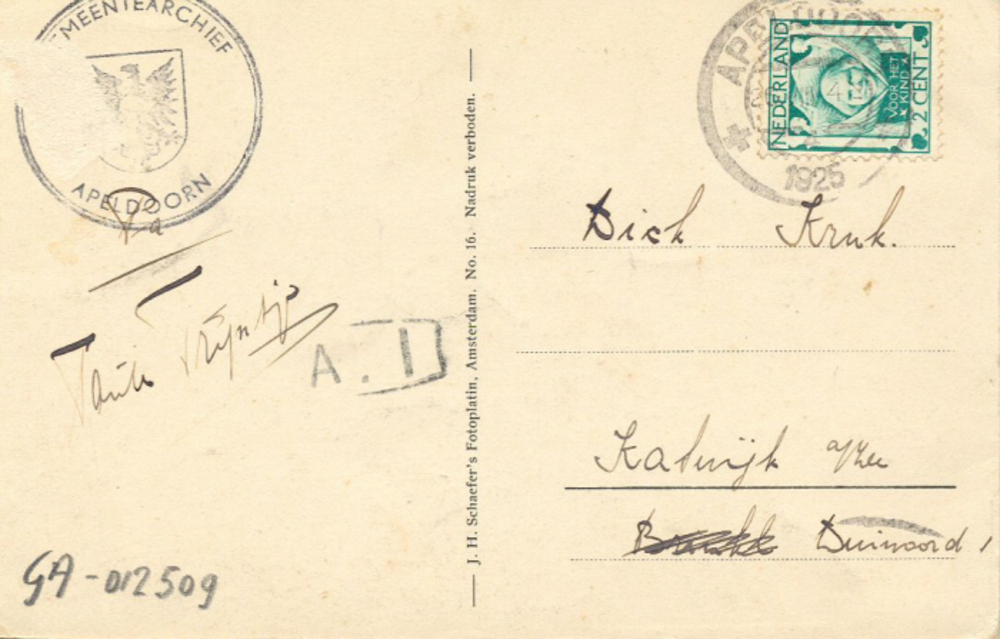 GEMEENTEARCHIEF
APELDOORN
Tante Trijntje
A. I
GA-012509
J. H. Schaefer's Fotoplatin, Amsterdam. No. 16. Nadruk verboden.
APELDOORN
4
1925
NEDERLAND
VOOR HET
KIND
2 CENT
Dick Kruk.
Katwijk a/Zee
Duinoord,